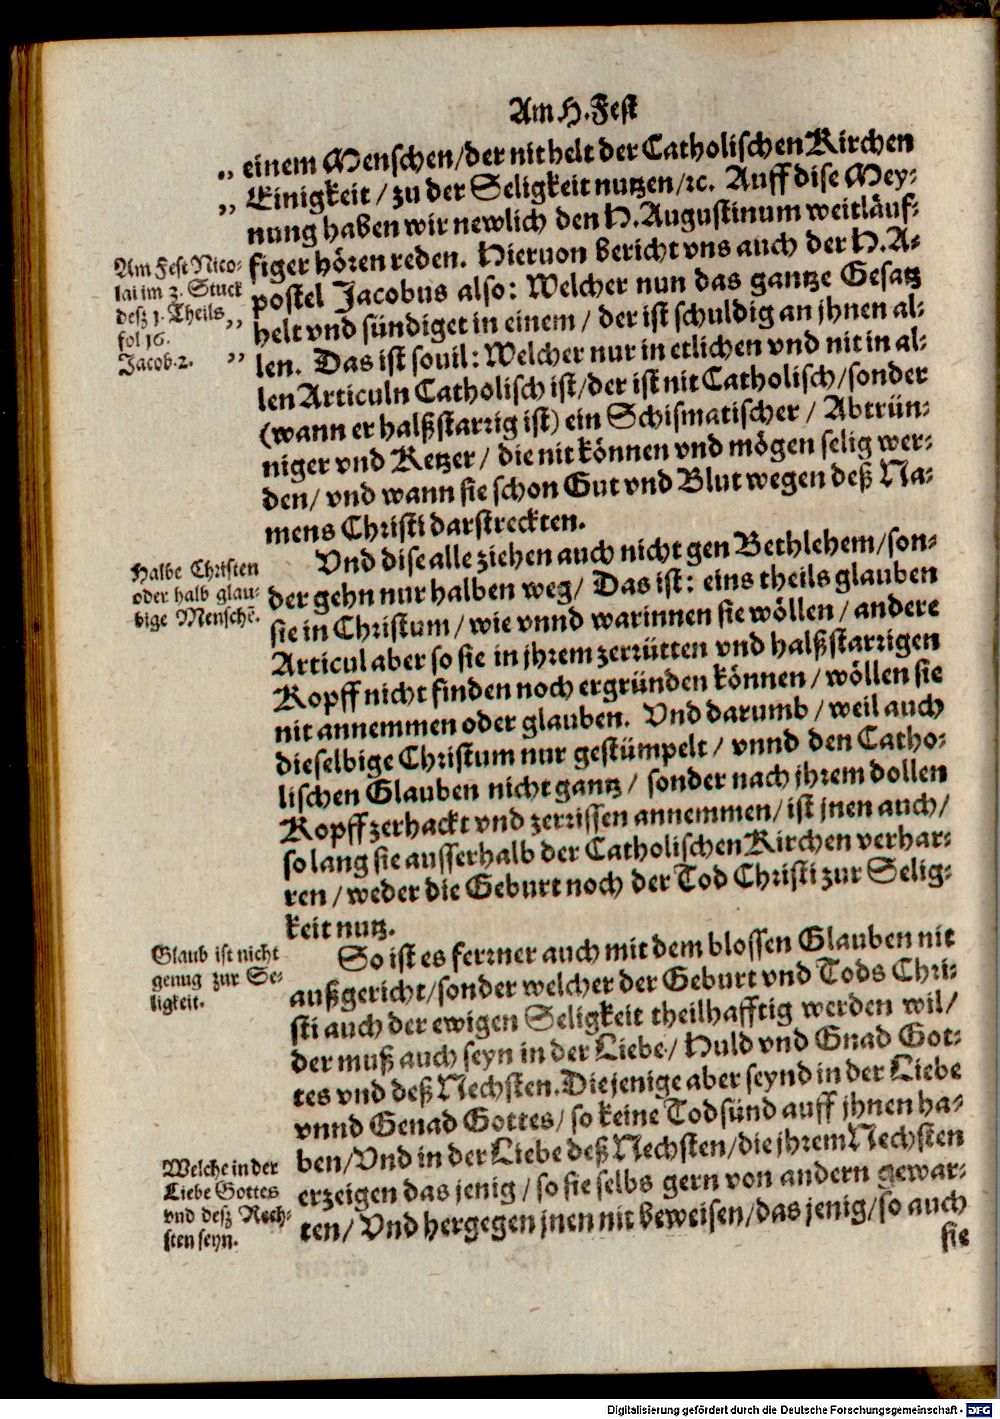 Am H. Fest
„ einem Menschen/der nit helt der Catholischen Kirchen
„ Einigkeit / zu der Seligkeit nutzen/ꝛc. Auff dise Mey-
nung haben wir newlich den H. Augustinum weitläuf-
figer hören reden. Hieruon bericht vns auch der H. A-
Am Fest Nico-
lai im 2. Stuck
deß 1. Theils
fol 16.
Jacob. 2.
postel Jacobus also: Welcher nun das gantze Gesatz
„ helt vnd sündiget in einem / der ist schuldig an jhnen al-
„ len. Das ist souil: Welcher nur in etlichen vnd nit in al-
len Articuln Catholisch ist/der ist nit Catholisch/sonder
(wann er halßstarrig ist) ein Schismatischer / Abtrün-
niger vnd Ketzer / die nit können vnd mögen selig wer-
den/ vnd wann sie schon Gut vnd Blut wegen deß Na-
mens Christi darstreckten.
Vnd dise alle ziehen auch nicht gen Bethlehem/son-
Halbe Christen
oder halb glau-
bige Menschē.
der gehn nur halben weg/ Das ist: eins theils glauben
sie in Christum / wie vnnd warinnen sie wöllen / andere
Articul aber so sie in jhrem zerrütten vnd halßstarrigen
Kopff nicht finden noch ergründen können / wöllen sie
nit annemmen oder glauben. Vnd darumb / weil auch
dieselbige Christum nur gestümpelt / vnnd den Catho-
lischen Glauben nicht gantz / sonder nach jhrem dollen
Kopff zerhackt vnd zerrissen annemmen/ ist jnen auch/
so lang sie ausserhalb der Catholischen Kirchen verhar-
ren / weder die Geburt noch der Tod Christi zur Selig-
keit nutz.
Glaub ist nicht
genug zur Se-
ligkeit.
So ist es ferrner auch mit dem blossen Glauben nit
außgericht/sonder welcher der Geburt vnd Tods Chri-
sti auch der ewigen Seligkeit theilhafftig werden wil/
der muß auch seyn in der Liebe / Huld vnd Gnad Got-
tes vnd deß Nechsten. Die jenige aber seynd in der Liebe
vnnd Genad Gottes/ so keine Todsünd auff jhnen ha-
ben/Vnd in der Liebe deß Nechsten/die jhrem Nechsten
Welche in der
Liebe Gottes
vnd deß Nech-
sten seyn.
erzeigen das jenig / so sie selbs gern von andern gewar-
ten/ Vnd hergegen jnen nit beweisen/das jenig/so auch
sie
Digitalisierung gefördert durch die Deutsche Forschungsgemeinschaft - DFG